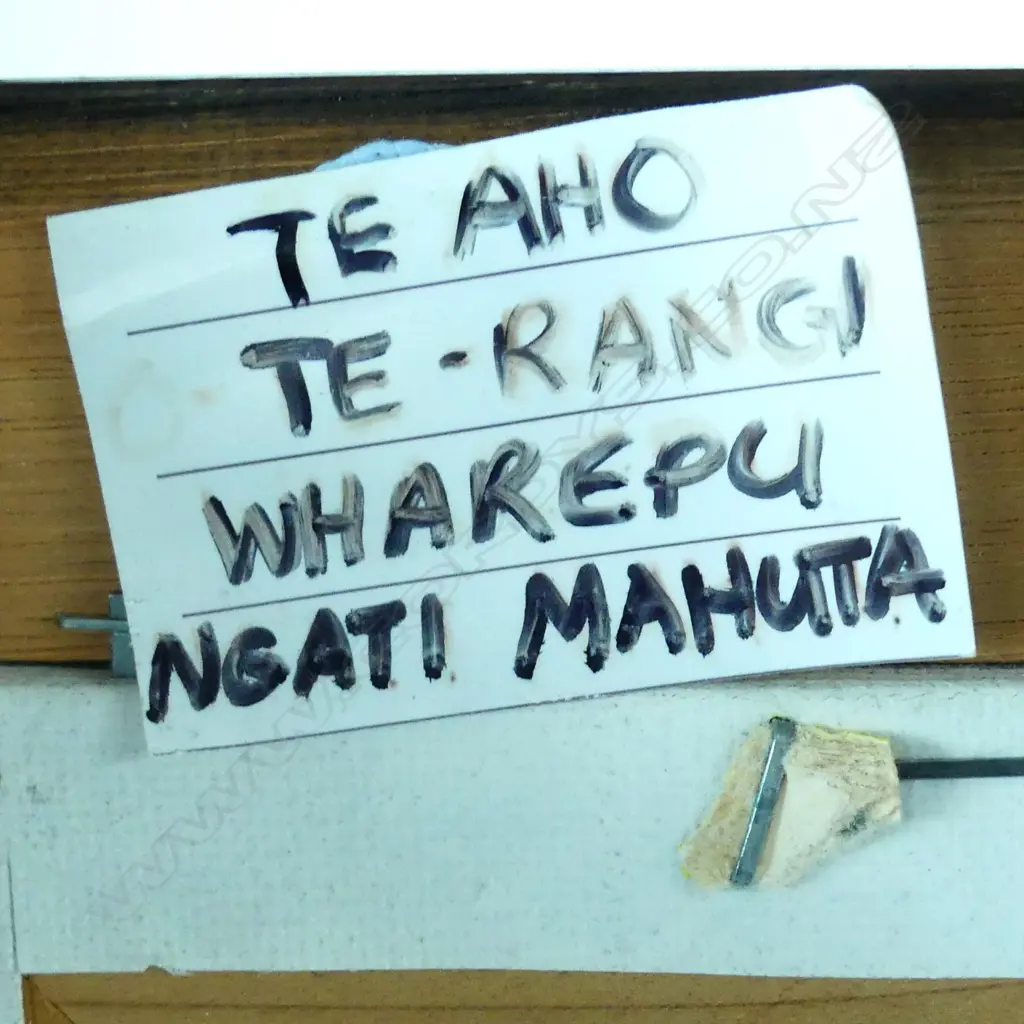 TE AHO
TE-RANGI
WHAREPU
NGATI MAHUTA